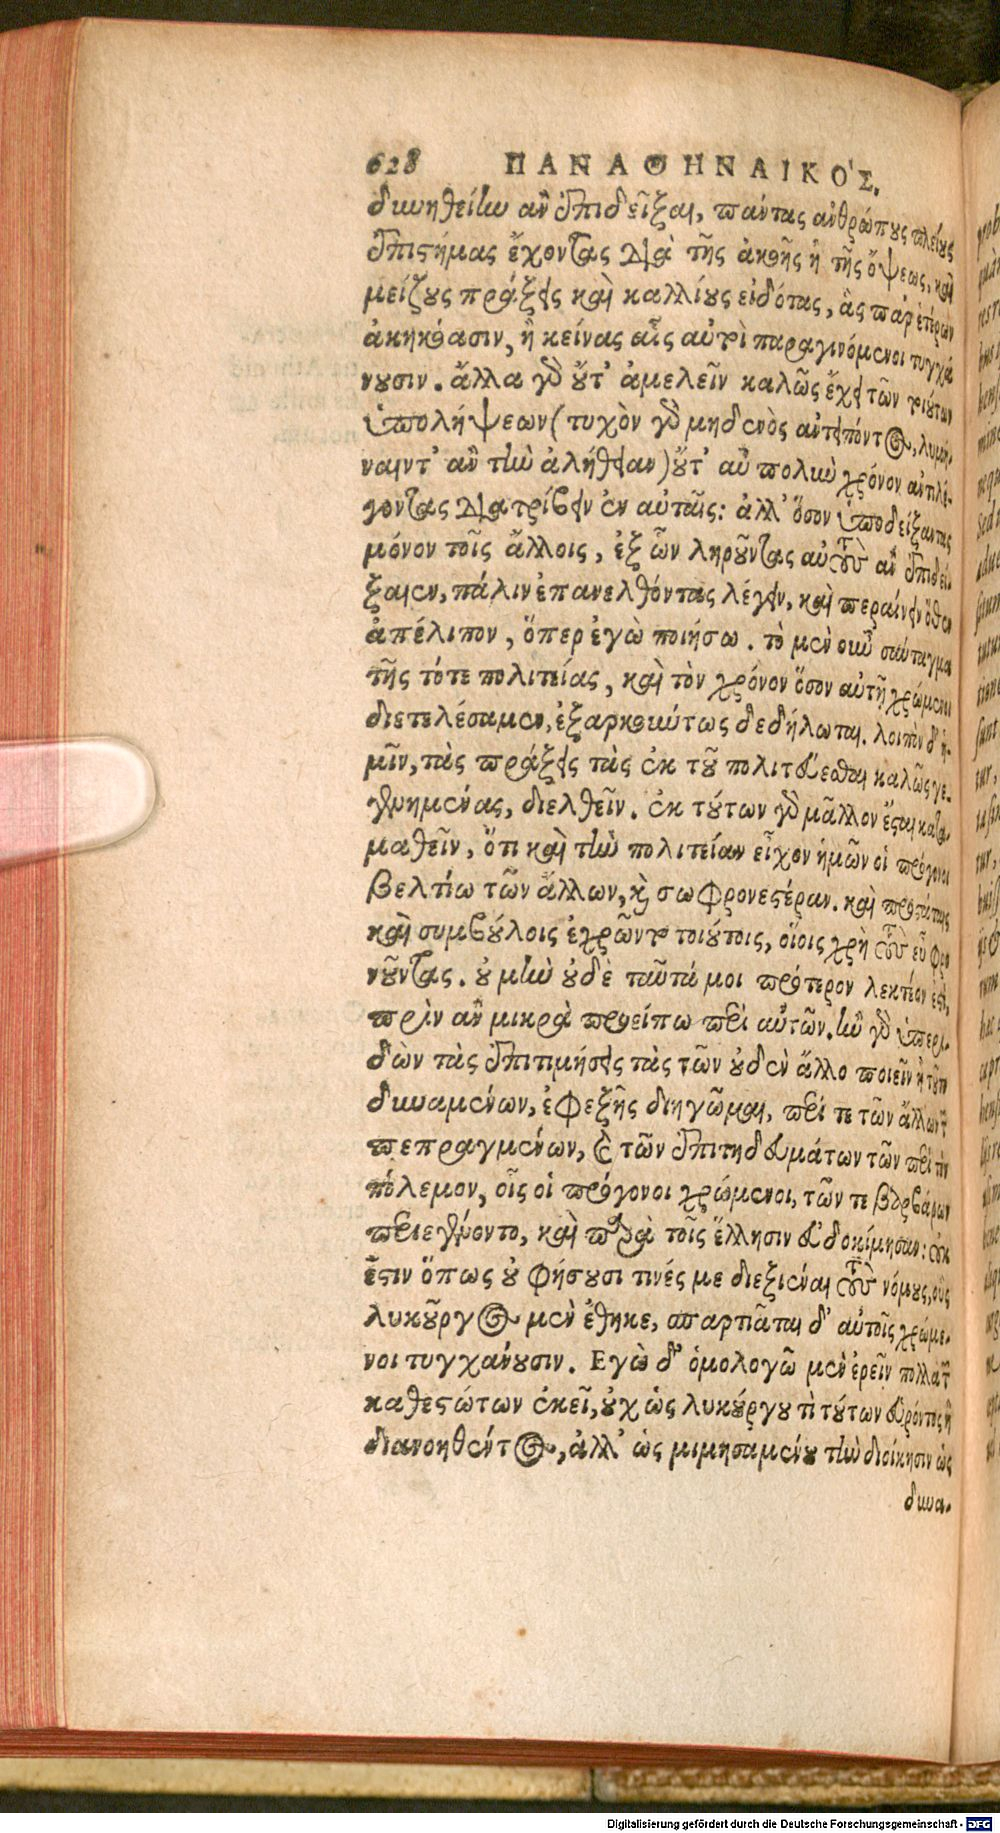 628 ΠΑΝΑΘΗΝΑΙΚΟ'Σ.
δυνηθείην ἂν ἐπιδεῖξαι, πάντας ἀνθρώπους πλείους
ἐπιστήμας ἔχοντας διὰ τῆς ἀκοῆς ἢ τῆς ὄψεως, καὶ
μείζους πράξεις καὶ καλλίους εἰδότας, ἃς παρ' ἑτέρων
ἀκηκόασιν, ἢ κείνας αἷς αὐτοὶ παραγινόμενοι τυγχά
νουσιν. ἄλλα γὰρ οὔτ' ἀμελεῖν καλῶς ἔχει τῶν τοιούτων
ὑπολήψεων (τυχὸν γὰρ μηδενὸς ἀντειπόντος, λυμή-
ναιντ' ἂν τὴν ἀλήθειαν) οὔτ' αὖ πολὺν χρόνον ἀντιλέ-
γοντας διατρίβειν ἐν αὐταῖς: ἀλλ' ὅσον ὑποδείξαντας
μόνον τοῖς ἄλλοις, ἐξ ὧν ληροῦντας αὐτοὺς ἂν ἐπιδεί-
ξαιεν, πάλιν ἐπανελθόντας λέγειν, καὶ περαίνειν ὅθεν
ἀπέλιπον, ὅπερ ἐγὼ ποιήσω. τὸ μὲν οὖν σύνταγμα
τῆς τότε πολιτείας, καὶ τὸν χρόνον ὅσον αὐτῇ χρώμενοι
διετελέσαμεν, ἐξαρκούντως δεδήλωται. λοιπὸν δ' ἡ-
μῖν, τὰς πράξεις τὰς ἐκ τοῦ πολιτεύεσθαι καλῶς γε-
γενημένας, διελθεῖν. ἐκ τούτων γὰρ μᾶλλον ἔσται κατα
μαθεῖν, ὅτι καὶ τὴν πολιτείαν εἶχον ἡμῶν οἱ πρόγονοι
βελτίω τῶν ἄλλων, καὶ σωφρονεστέραν. καὶ προστάταις
καὶ συμβούλοις ἐχρῶντο τοιούτοις, οἵοις χρὴ τοὺς εὖ φρο
νοῦντας. οὐ μὴν οὐδὲ ταῦτά μοι πρότερον λεκτέον ἐστί,
πρὶν ἂν μικρὰ προείπω περὶ αὐτῶν. ἢν γὰρ ὑπερι-
δὼν τὰς ἐπιτιμήσεις τὰς τῶν οὐδὲν ἄλλο ποιεῖν ἢ τοῦτο
δυναμένων, ἐφεξῆς διηγῶμαι, περί τε τῶν ἄλλων τῶν
πεπραγμένων, καὶ τῶν ἐπιτηδευμάτων τῶν περὶ τὸν
πόλεμον, οἷς οἱ πρόγονοι χρώμενοι, τῶν τε βαρβάρων
περιεγένοντο, καὶ παρὰ τοῖς ἕλλησιν εὐδοκίμησαν: οὐκ
ἔστιν ὅπως οὐ φήσουσι τινές με διεξιέναι τοὺς νόμους, οὓς
λυκοῦργος μὲν ἔθηκε, σπαρτιᾶται δ' αὐτοῖς χρώμε-
νοι τυγχάνουσιν. Εγὼ δ' ὁμολογῶ μὲν ἐρεῖν πολλὰ τῶν
καθεστώτων ἐκεῖ, οὐχ ὡς λυκούργου τὶ τούτων εὑρόντος ἢ
διανοηθέντος, ἀλλ' ὡς μιμησαμένου τὴν διοίκησιν ὡς
δυνα-
Digitalisierung gefördert durch die Deutsche Forschungsgemeinschaft - DFG